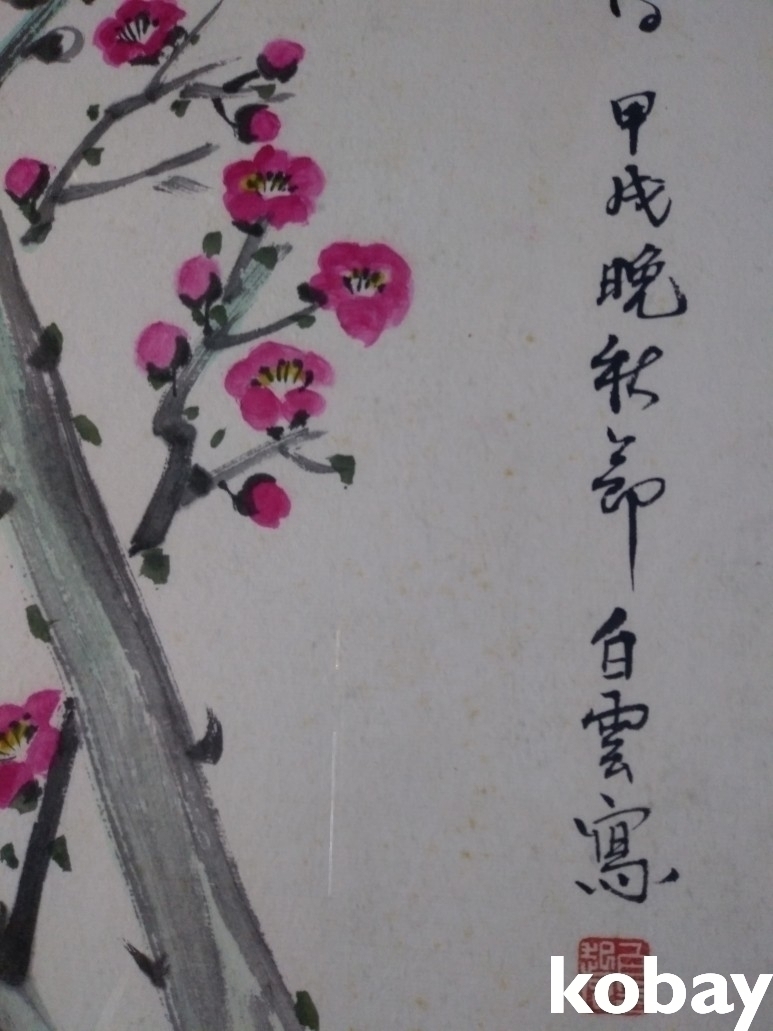 甲戌晚秋節
白雲寫
kobay